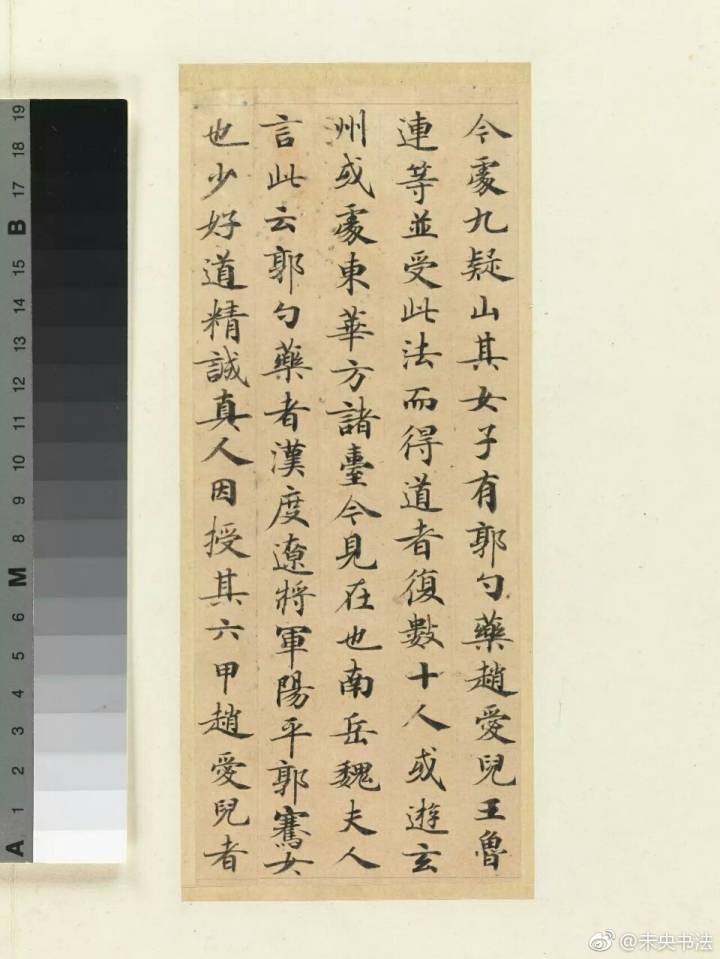 今處九疑山其女子有郭勺藥趙愛兒王魯
連等並受此法而得道者復數十人或遊玄
州或處東華方諸臺今見在也南岳魏夫人
言此云郭勺藥者漢度遼將軍陽平郭騫女
也少好道精誠真人因授其六甲趙愛兒者
19
18
17
B
15
14
13
12
11
10
9
8
M
6
5
4
3
2
1
A
@未央书法